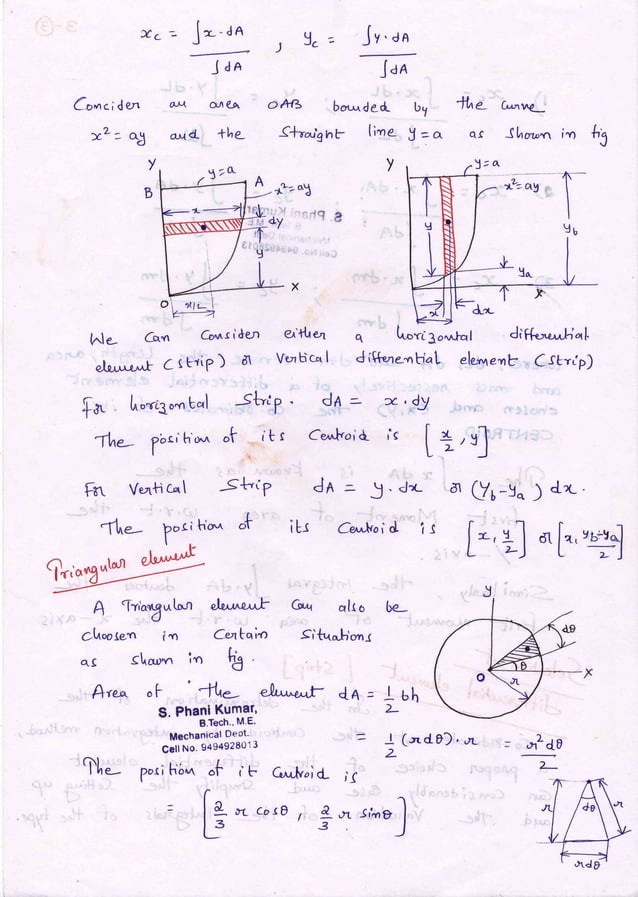 x_c = ∫x·dA / ∫dA , y_c = ∫y·dA / ∫dA
Concider an area OAB bouded by the curve
x² = ay and the Straight line y = a as Shown in fig
Y y=a B A x²=ay x dy y O x/2 X
Y y=a x²=ay y y_b y_a x dx X
We Can Consider either a horizontal differential
element (strip) or Vertical differential element (Strip)
For horizontal Strip. dA = x·dy
The position of its Centroid is [x/2, y]
For Vertical Strip dA = y·dx or (Y_b-Y_a) dx.
The position of its Centroid is [x, y/2] or [x, y_b-y_a/2]
Triangular element
A Triangular element Can also be
choosen in Certain Situations
as shown in fig.
y dθ θ O r X
Area of The element dA = 1/2 bh
S. Phani Kumar,
B.Tech., M.E.
Mechanical Dept.
Cell No. 9494928013
= 1/2 (rdθ)·r = r²dθ/2
The position of it Centroid is
= [2/3 r cosθ, 2/3 r sinθ]
r dθ r rdθ